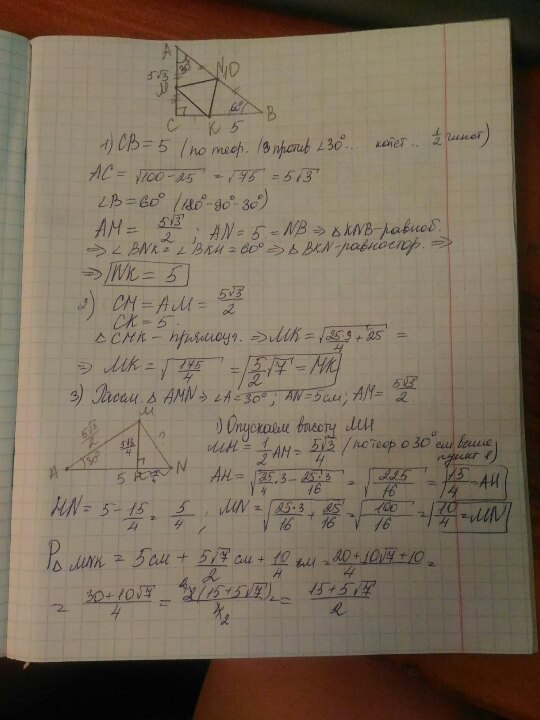 A
5√3
30°
M
N
10
C
K
5
60°
B
1) CB = 5 (по теор. 13 против ∠30°... катет .. 1/2 гипот)
AC = √100-25 = √75 = 5√3
∠B = 60° (180°-90°-30°)
AM = 5√3/2 ; AN = 5 = NB ⇒ △KNB-равноб.
⇒ ∠BNK = ∠BKN = 60° ⇒ △BKN-равностор. ⇒
⇒ NK = 5
2) CM = AM = 5√3/2
CK = 5
△CMK - прямоуг. ⇒ MK = √25·3/4 + 25 =
⇒ MK = √175/4 = 5/2 √7 = MK
3) Рассм. △AMN ⇒ ∠A = 30°; AN = 5см; AM = 5√3/2
M
5√3/2
5√3/4
?
A
30°
5
N
1) Опускаем высоту MH
MH = 1/2 AM = 5√3/4 (по теор о 30° см выше пункт 1)
AH = √25/4·3 - 25·3/16 = √225/16 = 15/4 = AH
HN = 5 - 15/4 = 5/4 ; MN = √25·3/16 + 25/16 = √100/16 = 10/4 = MN
P△MNK = 5см + 5√7/2 см + 10/4 см = 20+10√7+10/4 =
= 30+10√7/4 = 2(15+5√7)/4 2 = 15+5√7/2